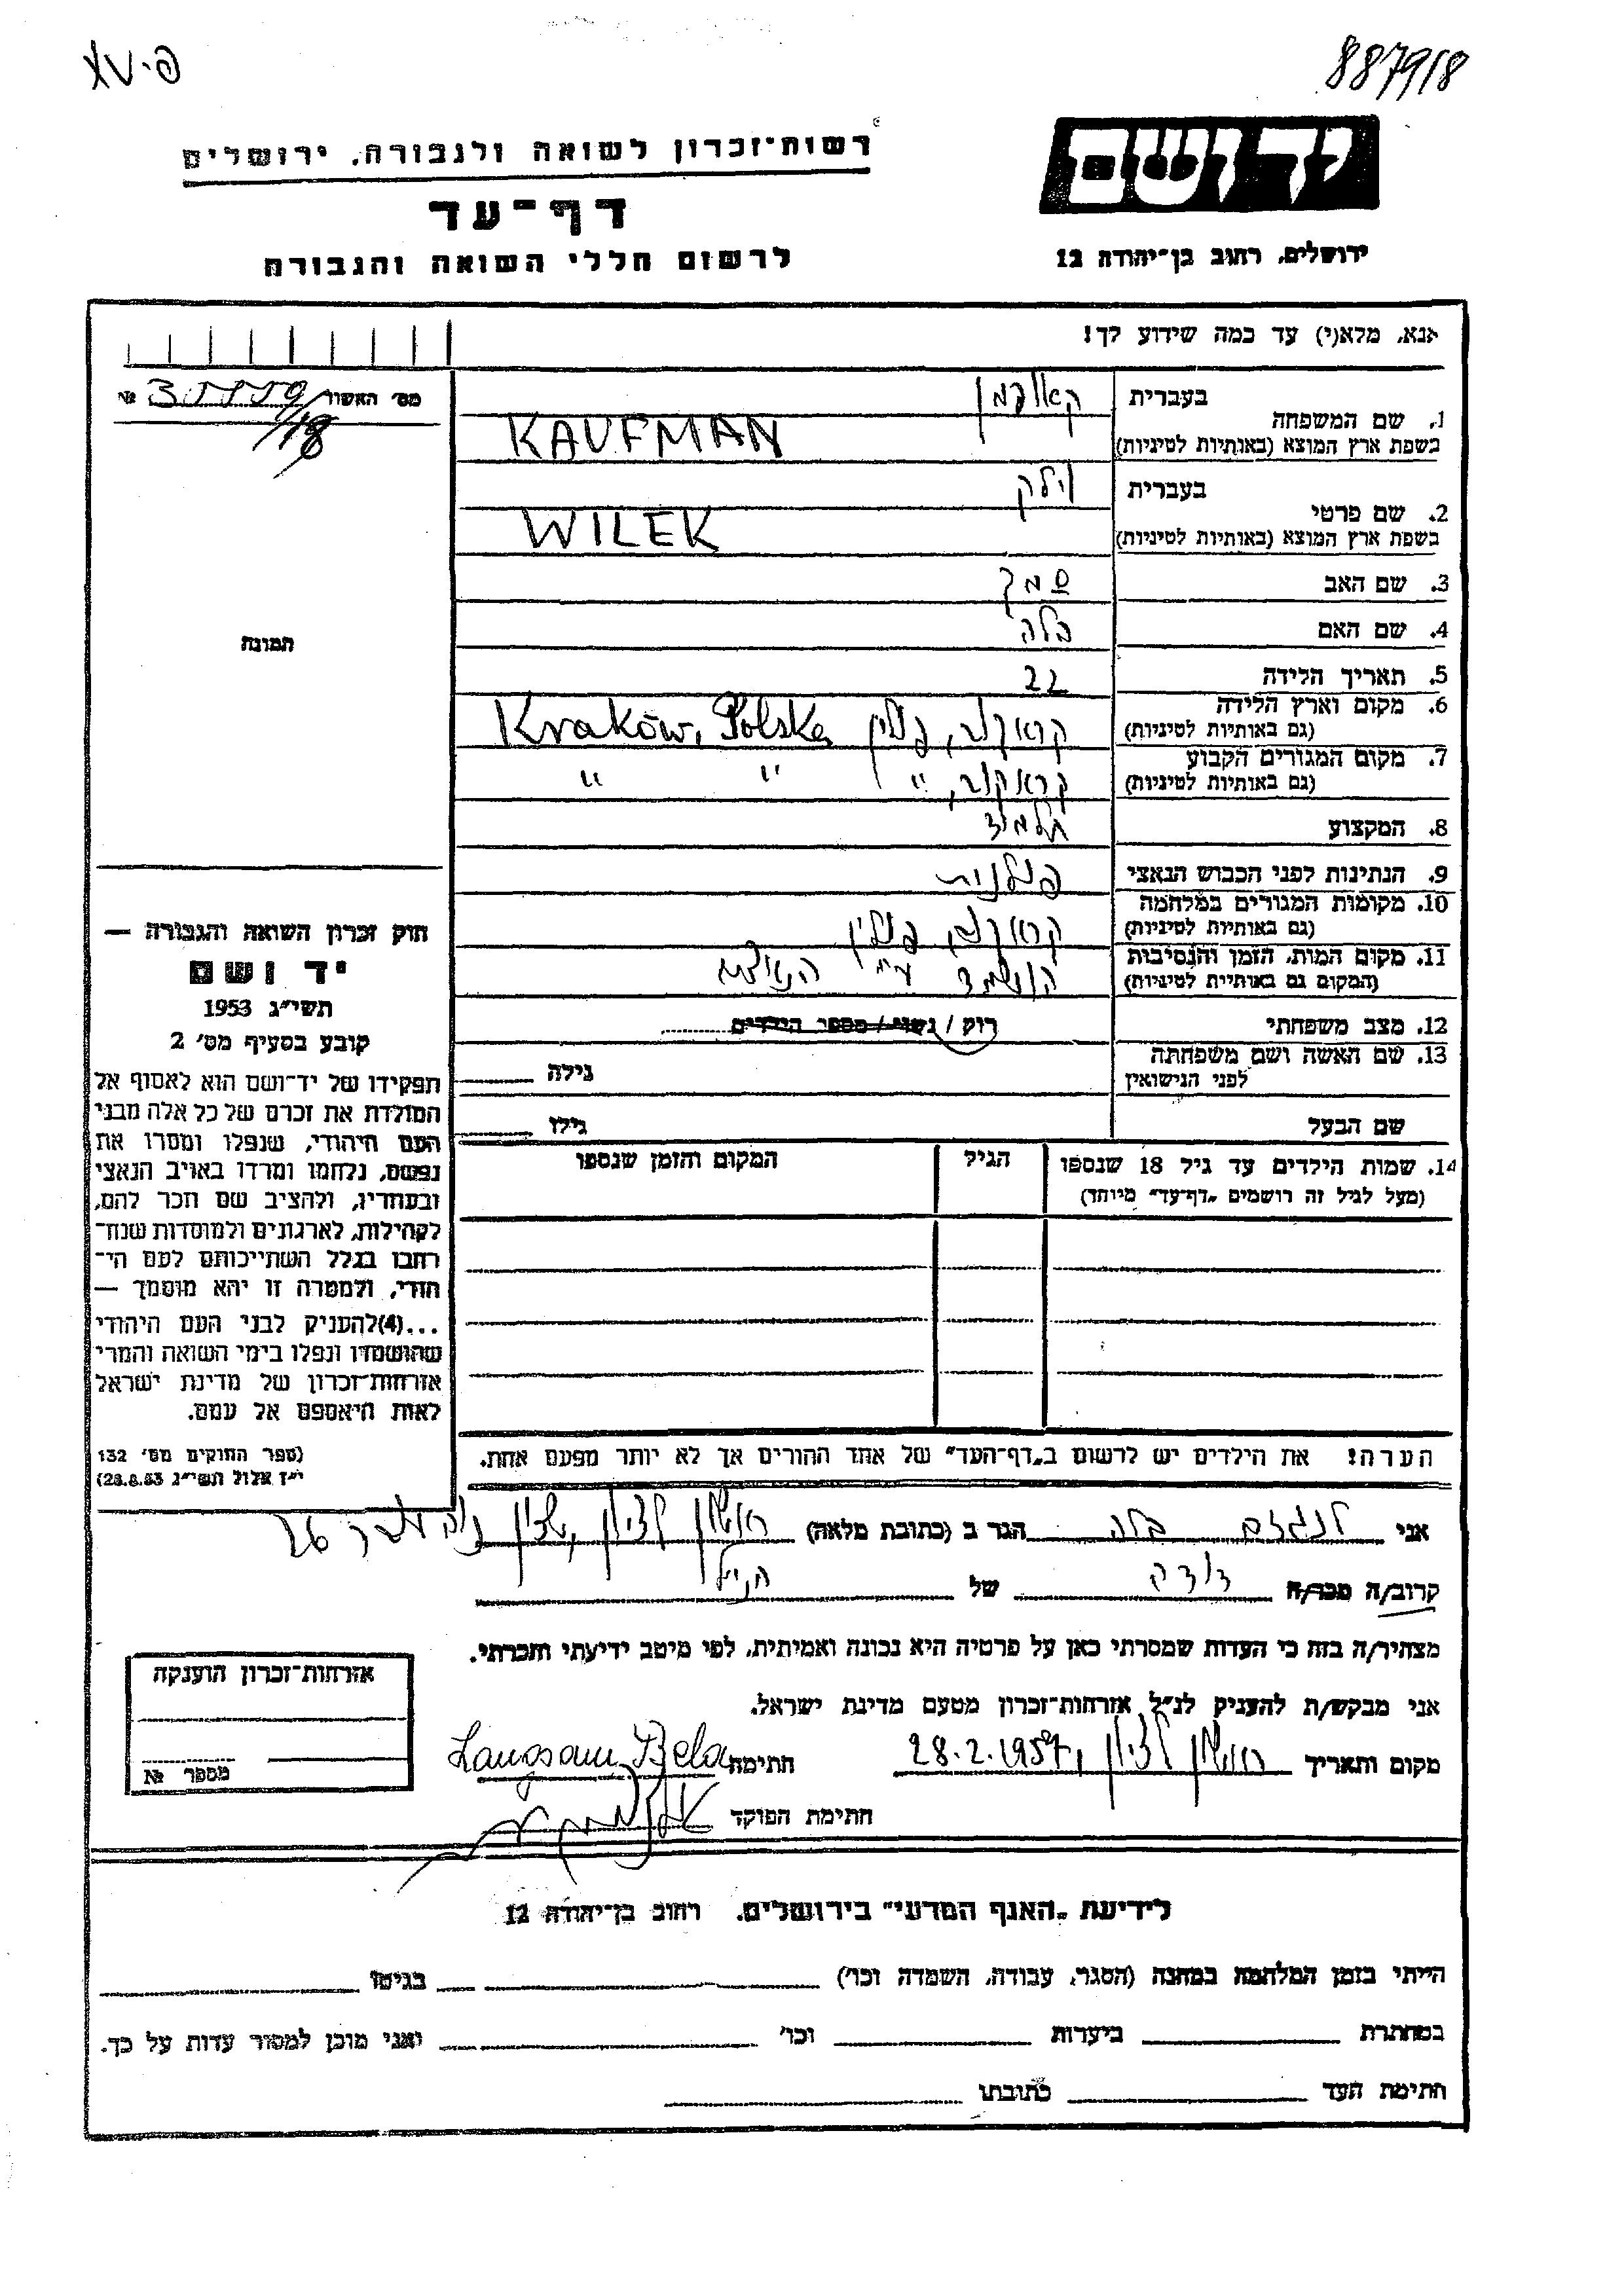 פ.XV
887918
יד ושם
ירושלים, רחוב בן־יהודה 12
רשות־זכרון לשואה ולגבורה, ירושלים
דף־עד
לרשום חללי השואה והגבורה
אנא, מלא(י) עד כמה שידוע לך!
מס׳ האשור №
1. שם המשפחה
בעברית קאופמן
בשפת ארץ המוצא (באותיות לטיניות) KAUFMAN
2. שם פרטי
בעברית וילק
בשפת ארץ המוצא (באותיות לטיניות) WILEK
3. שם האב
4. שם האם בלה
5. תאריך הלידה 22
6. מקום וארץ הלידה
(גם באותיות לטיניות) קראקוב, פולין Kraków, Polska
7. מקום המגורים הקבוע
(גם באותיות לטיניות) קראקוב, " " "
8. המקצוע תלמיד
9. הנתינות לפני הכבוש הנאצי פולנית
10. מקומות המגורים במלחמה
(גם באותיות לטיניות) קראקוב, פולין
11. מקום המות, הזמן והנסיבות
(המקום גם באותיות לטיניות) הושמד ע"י הנאצים
12. מצב משפחתי רוק / נשוי / מספר הילדים
13. שם האשה ושם משפחתה
לפני הנישואין גילה
שם הבעל גילו
14. שמות הילדים עד גיל 18 שנספו
(מעל לגיל זה רושמים „דף־עד" מיוחד)
הגיל
המקום והזמן שנספו
הערה! את הילדים יש לרשום ב„דף־העד" של אחד ההורים אך לא יותר מפעם אחת.
תמונה
חוק זכרון השואה והגבורה —
יד ושם
תשי״ג 1953
קובע בסעיף מס׳ 2
תפקידו של יד־ושם הוא לאסוף אל
המולדת את זכרם של כל אלה מבני
העם היהודי, שנפלו ומסרו את
נפשם, נלחמו ומרדו באויב הנאצי
ובעוזריו, ולהציב שם וזכר להם,
לקהילות, לארגונים ולמוסדות שנח־
רבו בגלל השתייכותם לעם הי־
הודי, ולמטרה זו יהא מוסמך —
...(4)להעניק לבני העם היהודי
שהושמדו ונפלו בימי השואה והמרי
אזרחות־זכרון של מדינת ישראל
לאות היאספם אל עמם.
(ספר החוקים מס׳ 132
י״ז אלול תשי״ג 28.8.53)
אני לנגזם בלה הגר ב (כתובת מלאה) ראשון לציון, 26
קרוב/ה מכר/ה דודה של הנ"ל
מצהיר/ה בזה כי העדות שמסרתי כאן על פרטיה היא נכונה ואמיתית, לפי מיטב ידיעתי והכרתי.
אני מבקש/ת להעניק לנ״ל אזרחות־זכרון מטעם מדינת ישראל.
מקום ותאריך ראשון לציון, 28.2.1957 חתימה Langsam Bela
חתימת הפוקד
אזרחות־זכרון הוענקה
מספר №
לידיעת „האגף המדעי" בירושלים. רחוב בן־יהודה 12
הייתי בזמן המלחמה במחנה (הסגר, עבודה, השמדה וכו׳) בגיטו
במחתרת ביערות וכו׳ ואני מוכן למסור עדות על כך.
חתימת העד כתובתו